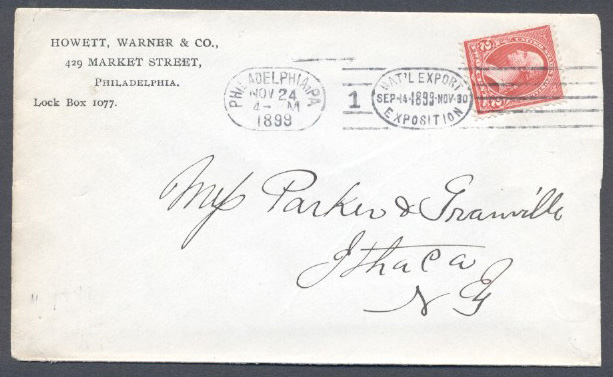 HOWETT, WARNER & CO.,
429 MARKET STREET,
PHILADELPHIA.
Lock Box 1077.
PHILADELPHIA, PA
NOV 24
4- M
1899
1
NAT'L EXPORT
SEP-14-1899-NOV-30
EXPOSITION
Mess Parker & Granville
Ithaca
N Y